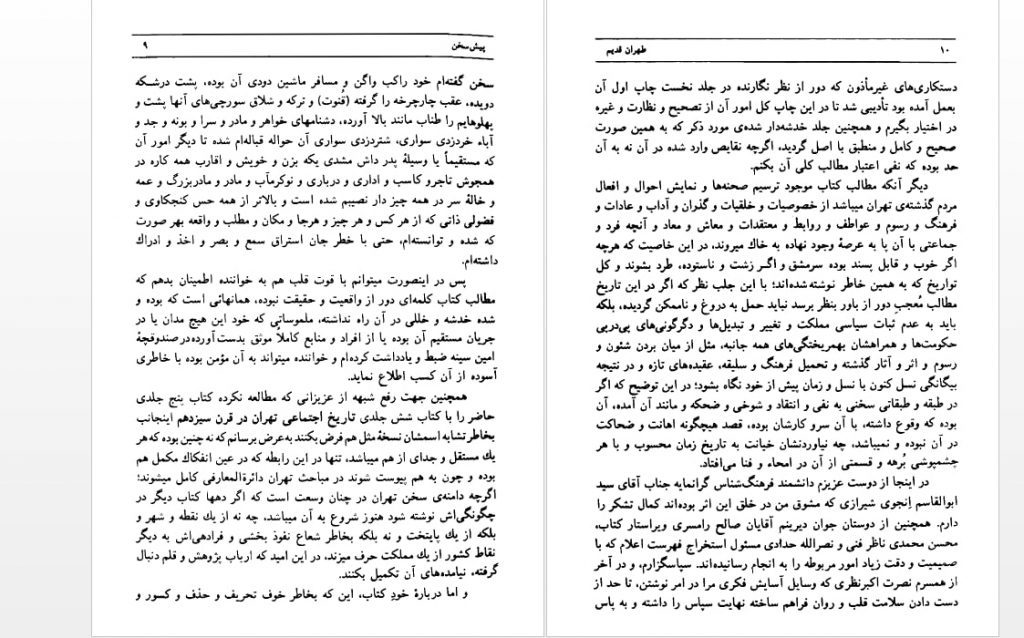 پیش‌سخن ۹
سخن گفته‌ام خود راکب واگن و مسافر ماشین دودی آن بوده، پشت درشکه
دویده، عقب چارچرخه را گرفته (قُنوت) و ترکه و شلاق سورچی‌های آنها پشت و
پهلوهایم را طناب مانند بالا آورده، دشنامهای خواهر و مادر و سرا و بونه و جد و
آباء خردزدی سواری، شتردزدی سواری آن حواله قباله‌ام شده تا دیگر امور آن
که مستقیماً یا وسیلهٔ پدر داش مشدی یکه بزن و خویش و اقارب همه کاره در
همجوش تاجر و کاسب و اداری و درباری و نوکرمآب و مادر و مادربزرگ و عمه
و خالهٔ سر در همه چیز دار نصیبم شده است و بالاتر از همه حس کنجکاوی و
فضولی ذاتی که از هر کس و هر چیز و هرجا و مکان و مطلب و واقعه بهر صورت
که شده و توانسته‌ام، حتی با خطر جان استراق سمع و بصر و اخذ و ادراك
داشته‌ام.
پس در اینصورت میتوانم با قوت قلب هم به خواننده اطمینان بدهم که
مطالب کتاب کلمه‌ای دور از واقعیت و حقیقت نبوده، همانهائی است که بوده و
شده خدشه و خللی در آن راه نداشته، ملموساتی که خود این هیچ مدان یا در
جریان مستقیم آن بوده یا از افراد و منابع کاملاً موثق بدست آورده در صندوقچهٔ
امین سینه ضبط و یادداشت کرده‌ام و خواننده میتواند به آن مؤمن بوده با خاطری
آسوده از آن کسب اطلاع نماید.
همچنین جهت رفع شبهه از عزیزانی که مطالعه نکرده کتاب پنج جلدی
حاضر را با کتاب شش جلدی تاریخ اجتماعی تهران در قرن سیزدهم اینجانب
بخاطر تشابه اسمشان نسخهٔ مثل هم فرض بکنند به عرض برسانم که نه چنین بوده که هر
یك مستقل و جدای از هم میباشد، تنها در این رابطه که در عین انفکاك مکمل هم
بوده و چون به هم پیوست شوند در مباحث تهران دائرةالمعارفی کامل میشوند؛
اگرچه دامنه‌ی سخن تهران در چنان وسعت است که اگر دهها کتاب دیگر در
چگونگی‌اش نوشته شود هنوز شروع به آن میباشد، چه نه از یك نقطه و شهر و
بلکه از یك پایتخت و نه بلکه بخاطر شعاع نفوذ بخشی و فرادهی‌اش به دیگر
نقاط کشور از یك مملکت حرف میزند، در این امید که ارباب پژوهش و قلم دنبال
گرفته، نیامده‌های آن تکمیل بکنند.
و اما دربارهٔ خودِ کتاب، این که بخاطر خوف تحریف و حذف و کسور و
۱۰ طهران قدیم
دستکاری‌های غیرمأذون که دور از نظر نگارنده در جلد نخست چاپ اول آن
بعمل آمده بود تأدیبی شد تا در این چاپ کل امور آن از تصحیح و نظارت و غیره
در اختیار بگیرم و همچنین جلد خدشه‌دار شده‌ی مورد ذکر که به همین صورت
صحیح و کامل و منطبق با اصل گردید، اگرچه نقایص وارد شده در آن نه به آن
حد بوده که نفی اعتبار مطالب کلی آن بکنم.
دیگر آنکه مطالب کتاب موجود ترسیم صحنه‌ها و نمایش احوال و افعال
مردم گذشته‌ی تهران میباشد از خصوصیات و خلقیات و گذران و آداب و عادات و
فرهنگ و رسوم و عواطف و روابط و معتقدات و معاش و معاد و آنچه فرد و
جماعتی با آن پا به عرصهٔ وجود نهاده به خاك میروند، در این خاصیت که هرچه
اگر خوب و قابل پسند بوده سرمشق و اگر زشت و ناستوده، طرد بشوند و کل
تواریخ که به همین خاطر نوشته شده‌اند؛ با این جلب نظر که اگر در این تاریخ
مطالب مُعجبِ دور از باور بنظر برسد نباید حمل به دروغ و ناممکن گردیده، بلکه
باید به عدم ثبات سیاسی مملکت و تغییر و تبدیل‌ها و دگرگونی‌های پی‌درپی
حکومت‌ها و همراهشان بهمریختگی‌های همه جانبه، مثل از میان بردن شئون و
رسوم و اثر و آثار گذشته و تحمیل فرهنگ و سلیقه، عقیده‌های تازه و در نتیجه
بیگانگی نسل کنون با نسل و زمان پیش از خود نگاه بشود؛ در این توضیح که اگر
در طبقه و طبقاتی سخنی به نفی و انتقاد و شوخی و ضحکه و مانند آن آمده، آن
بوده که وقوع داشته، با آن سرو کارشان بوده، قصد هیچگونه اهانت و ضحاکت
در آن نبوده و نمیباشد، چه نیاوردنشان خیانت به تاریخ زمان محسوب و با هر
چشمپوشی بُرهه و قسمتی از آن در امحاء و فنا می‌افتاد.
در اینجا از دوست عزیزم دانشمند فرهنگ‌شناس گرانمایه جناب آقای سید
ابوالقاسم اِنجوی شیرازی که مشوق من در خلق این اثر بوده‌اند کمال تشکر را
دارم. همچنین از دوستان جوان دیرینم آقایان صالح رامسری ویراستار کتاب،
محسن محمدی ناظر فنی و نصرالله حدادی مسئول استخراج فهرست اعلام که با
صمیمیت و دقت زیاد امور مربوطه را به انجام رسانیده‌اند. سپاسگزارم، و در آخر
از همسرم نصرت اکبرنظری که وسایل آسایش فکری مرا در امر نوشتن، تا حد از
دست دادن سلامت قلب و روان فراهم ساخته نهایت سپاس را داشته و به پاس